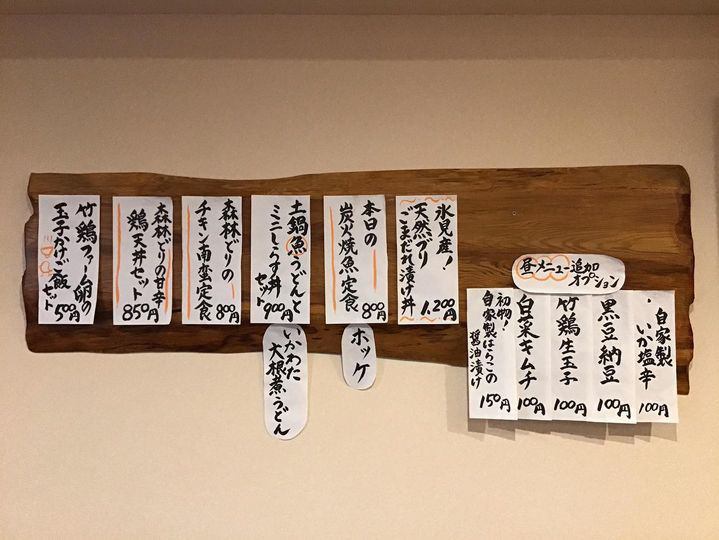 氷見産！
天然ブリ
ごまだれ漬け丼
1,200円
本日の
炭火焼魚定食
800円
ホッケ
土鍋魚うどんと
ミニしらす丼
セット
900円
いかわた
大根煮うどん
森林どりの
チキン南蛮定食
800円
森林どりの甘辛
鶏天丼セット
850円
竹鶏ファーム卵の
玉子かけご飯
セット
500円
昼メニュー追加
オプション
・自家製
いか塩辛
100円
黒豆納豆
100円
竹鶏生玉子
100円
白菜キムチ
100円
初物！
自家製はらこの
醤油漬け
150円